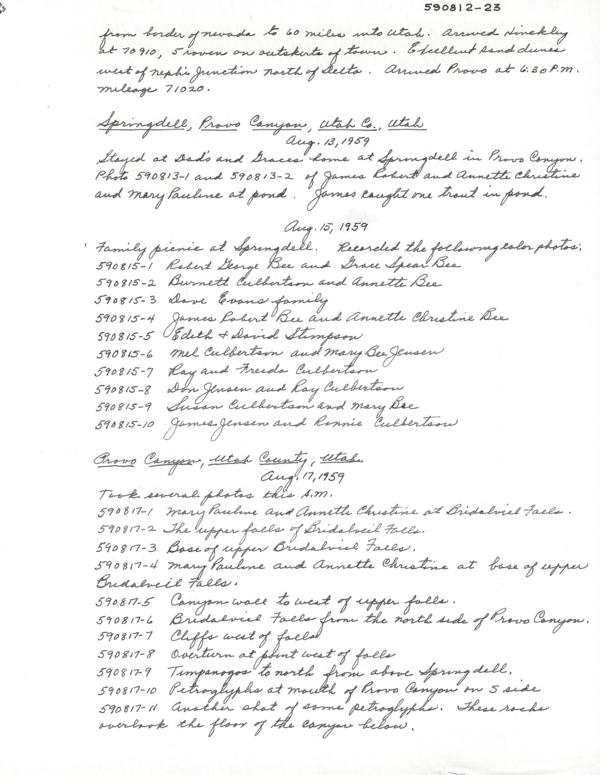 590812-23
from border of nevada to 60 miles into Utah. Arrived Hinckley
at 70910, 5 roven on outskirts of town. Excellent sand dunes
west of nephi Junction north of Delta. Arrived Provo at 6:30 P.M.
mileage 71020.
Springdell, Provo Canyon, Utah Co., Utah
Aug. 13, 1959
Stayed at Dad's and Graces home at Springdell in Provo Canyon.
Photo 590813-1 and 590813-2 of James Robert and Annette Christine
and Mary Pauline at pond. James caught one trout in pond.
Aug. 15, 1959
Family picnic at Springdell. Recorded the following color photos:
590815-1 Robert George Bee and Grace Spear Bee
590815-2 Burnett Culbertson and Annette Bee
590815-3 Dave Evans family
590815-4 James Robert Bee and Annette Christine Bee
590815-5 Edith & David Stimpson
590815-6 Mel Culbertson and Mary Bee Jensen
590815-7 Ray and Freida Culbertson
590815-8 Don Jensen and Ray Culbertson
590815-9 Susan Culbertson and Mary Bee
590815-10 James Jensen and Ronnie Culbertson
Provo Canyon, Utah County, Utah
Aug. 17, 1959
Took several photos this A.M.
590817-1 Mary Pauline and Annette Christine at Bridalviel Falls.
590817-2 The upper falls of Bridalveil Falls.
590817-3 Base of upper Bridalviel Falls.
590817-4 Mary Pauline and Annette Christine at base of upper
Bridalveil Falls.
590817-5 Canyon wall to west of upper falls.
590817-6 Bridalviel Falls from the north side of Provo Canyon.
590817-7 Cliffs west of falls
590817-8 Overturn at point west of falls
590817-9 Timpanogos to north from above Springdell.
590817-10 Petroglyphs at mouth of Provo Canyon on S side
590817-11 Another shot of some petroglyphs. These rocks
overlook the floor of the canyon below.